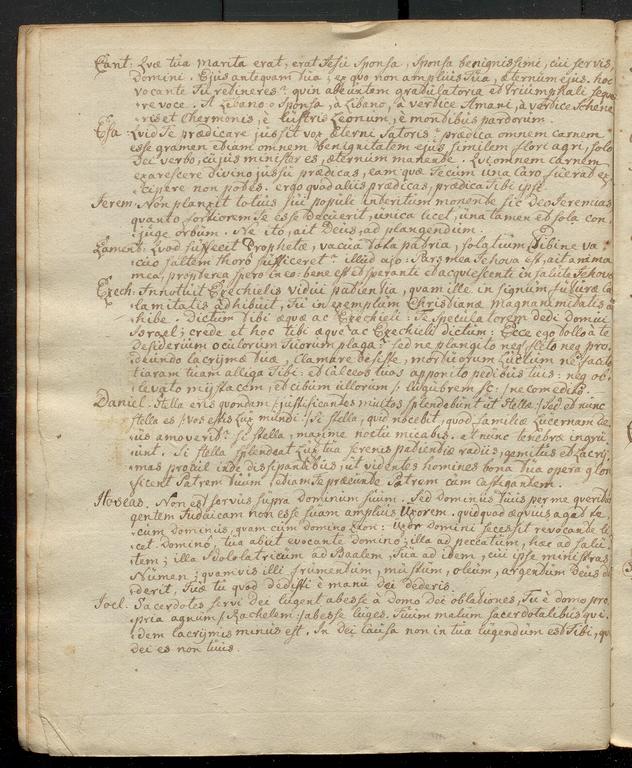 Cant: Quæ tua marita erat, erat Jesu Sponsa, Sponsa benignissimi, cui servis
Domini. Ejus antequam tua; ex quo non amplius Tua, æternum ejus. hoc
vocante Tu retineres? quin abeuntem gratulatoria et triumphali seque
re voce. A Libano o Sponsa, a Libano, a vertice Amani, a vertice Schene
ris et Chermonis, e lustris Leonum, e montibus pardorum.
Esa: Quid Te prædicare jussit vox æterni Satoris? prædica omnem carnem
esse gramen etiam omnem benignitatem ejus similem flori agri, solo
Dei verbo, cujus minister es, æternum manente. Qui omnem carnem
exarescere divino jussu prædicas, eam quæ Tecum una Caro fuerat ex
cipere non potes. ergo quod aliis prædicas, prædica Tibi ipse.
Jerem: Non planxit totius sui populi interitum monente sic Deo Jeremias
quanto fortiorem Te esse decuerit, unica licet, una tamen et sola con
juge orbum. Ne ito, ait Deus, ad plangendum.
Lament: Quod suffecit Prophetæ, vacua tota patria, solatium, Tibine va
cuo saltem thoro sufficeret? illud ajo: Pars mea Jehova est, ait anima
mea, propterea spero in eo: bene est et speranti et acquiescenti in salute Jehovæ
Ezech: Innotuit Ezechielis vidui patientia, quam ille in signum futuræ ca
lamitatis adhibuit, Tu in exemplum Christianæ magnanimitatis ad
hibe. Dictum tibi æque ac Ezechieli: Te speculatorem dedi domui
Israel; crede et hoc tibi æque ac Ezechieli dictum: Ecce ego tollo a te
desiderium oculorum Tuorum plaga? sed ne plangito neq; fleto neq; pro
deunto lacrymæ tuæ, clamare desiste, mortuorum luctum ne facito
tiaram tuam alliga Tibi: et calceos tuos apponito pedibus tuis: neq; ob
velato mystacem; et cibum illorum /: lugubrem sc: / ne comedito.
Daniel. Stella eris quondam /: justificantes multos splendebunt ut Stellæ :/ Sed et nunc
stella es /: vos estis Lux mundi :/ Si stella, quid nocebit, quod familiæ Lucernam de
us amoverit? si stella, maxime noctu micabis. et nunc tenebræ ingru
unt. Si stella splendeat Lux tua serenis patientiæ radiis, gemitus et lacry
mas procul inde dissipantibus, ut videntes homines bona tua opera glor
ificent Patrem tuum etiam Te præeunte Patrem cum castigantem.
Hoseas. Non est servus supra dominum suum. Sed dominus tuus per me querita
gentem Judaicam non esse suam amplius Uxorem. quid quod æquius agat te
cum dominus, quam cum domino Leon: Uxor domini secessit revocante li
cet Domino, tua abiit evocante domino; illa ad peccatum, hæc ad salu
tem; illa Idololatricum ad Baalem, Tua ad idem, cui ipse ministras
Numen; quamvis illi frumentum, mustum, oleum, argentum Deus de
derit, Tuæ tu quod dedisti e manu dei dederis.
Joel. Sacerdotes servi Dei lugent abesse a domo Dei oblationes, Tu e domo pro
pria agnum /: Rachelem :/ abesse luges. Tuum malum sacerdotalibus qui
dem lacrymis minus est. In Dei causa non in tua lugendum est Tibi, qu
dei es non tuus.